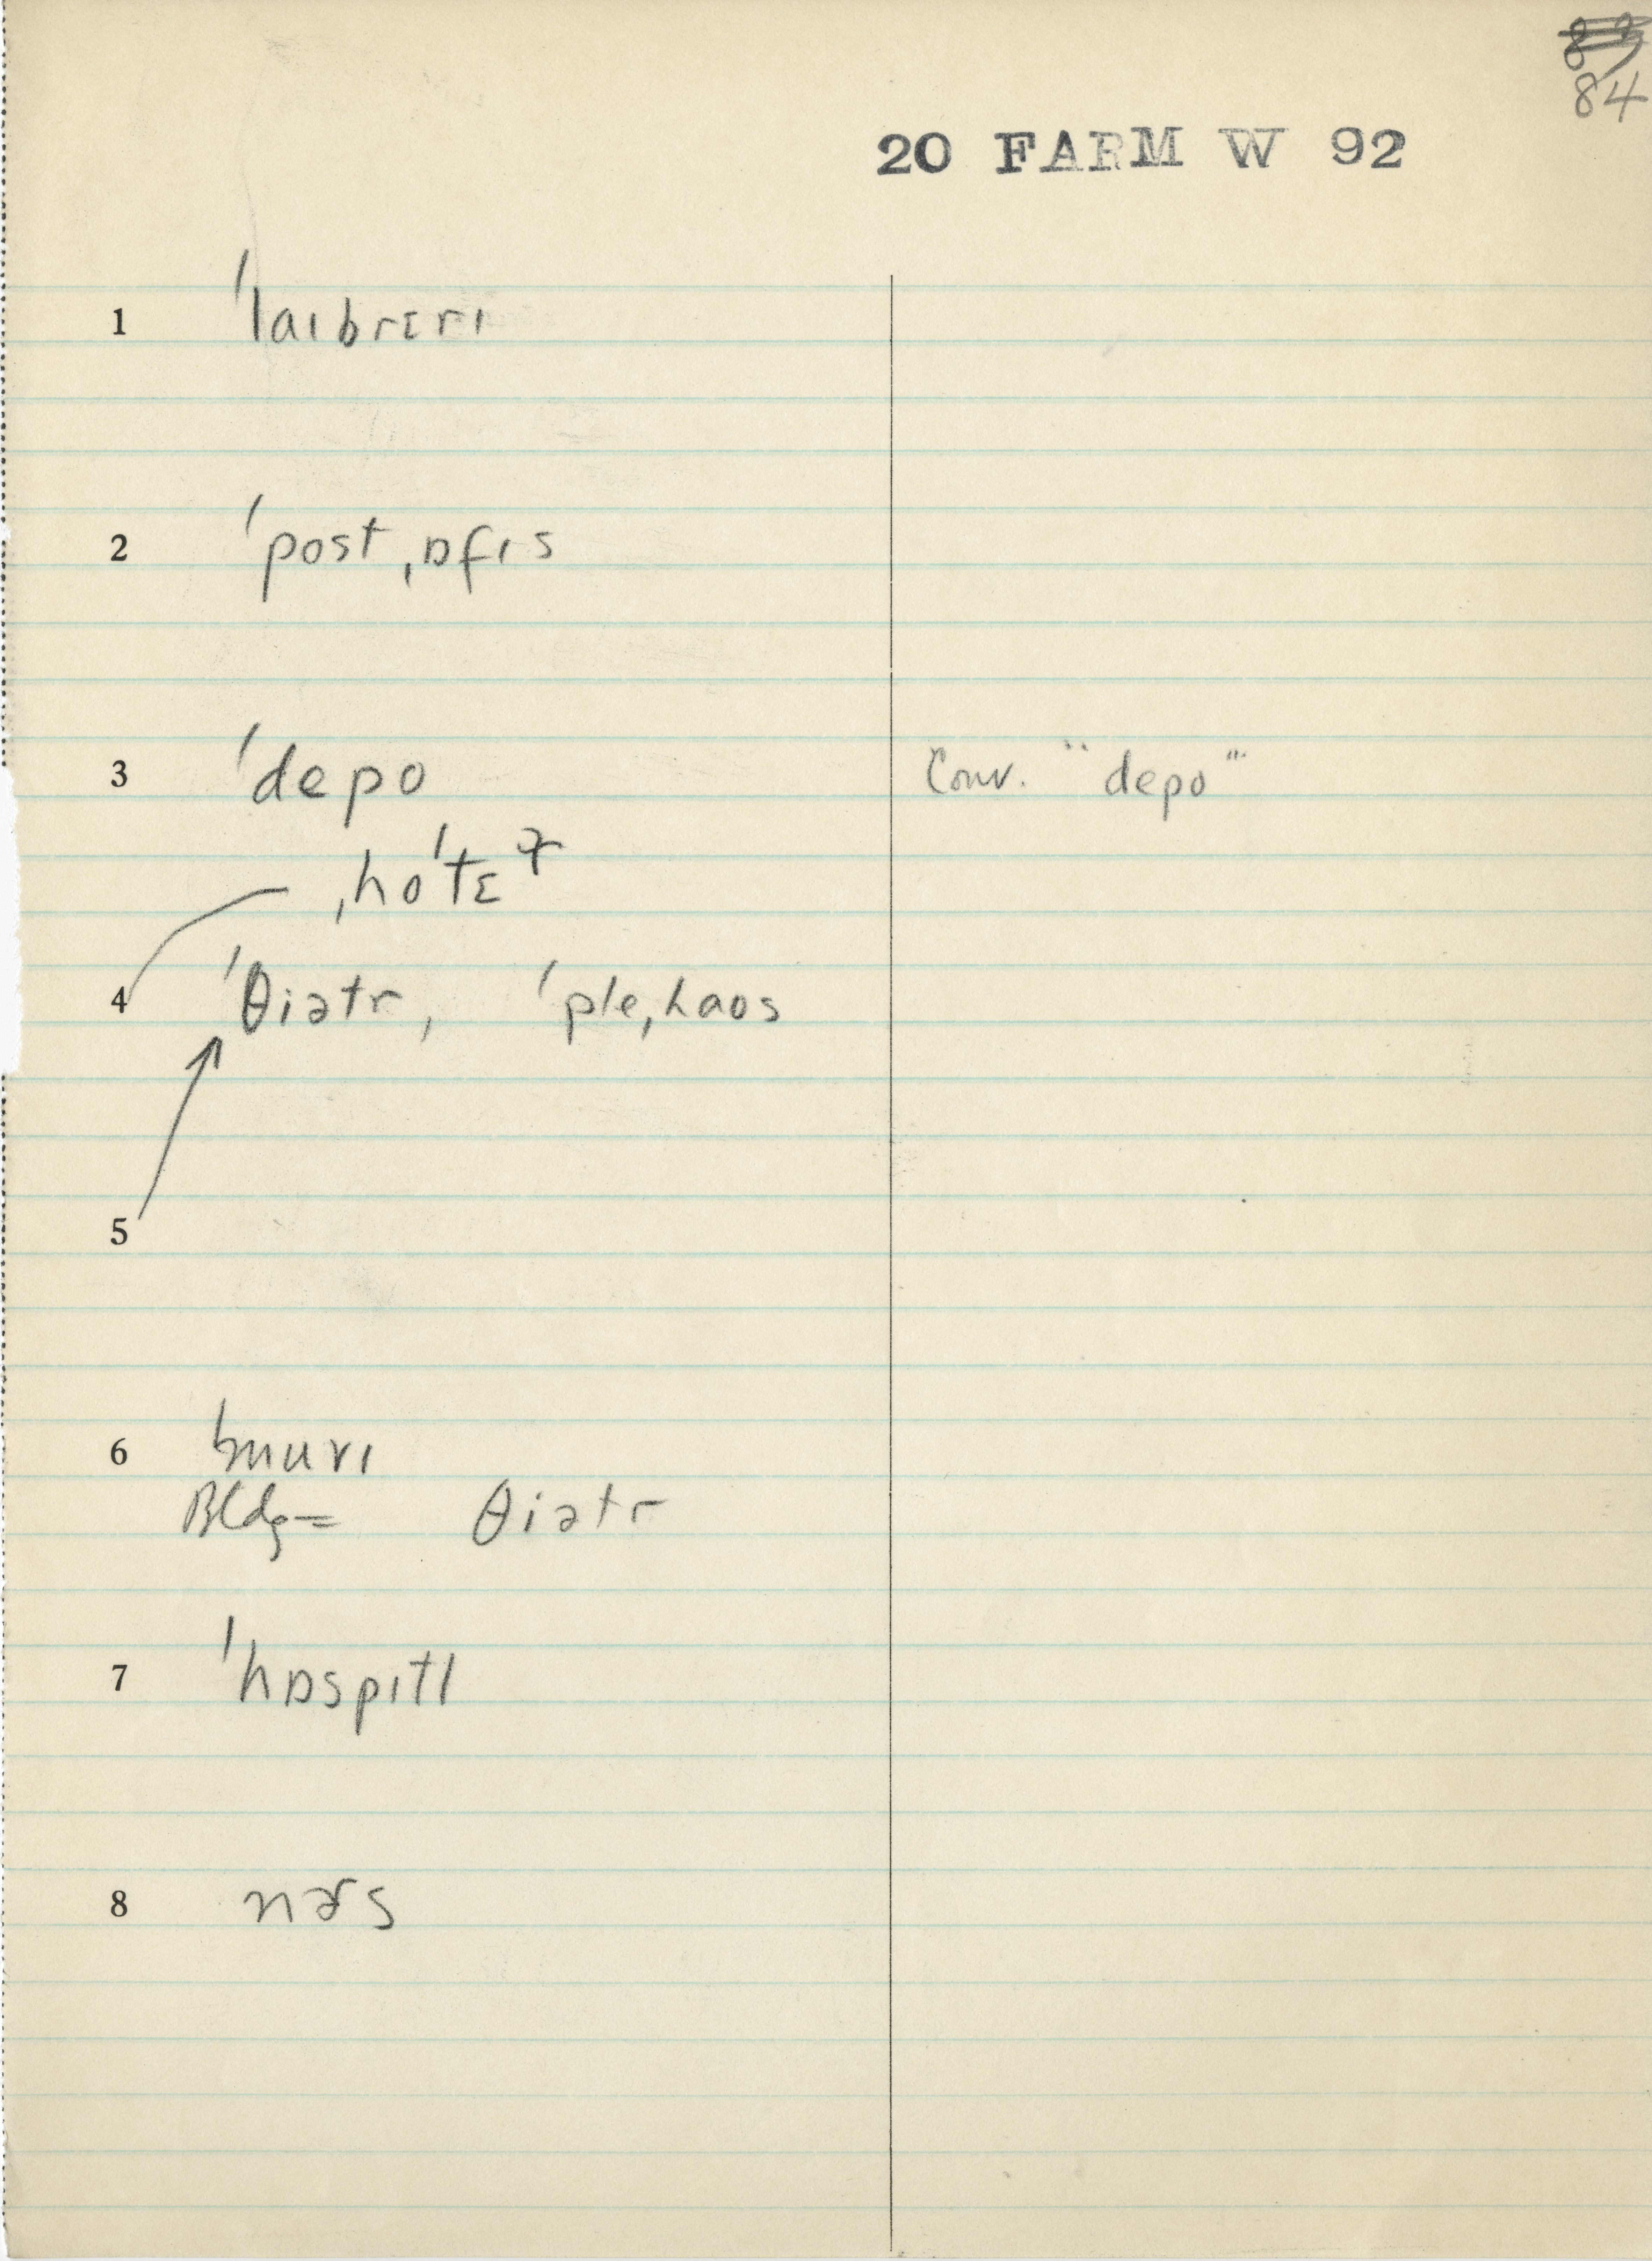 84
20 FARM W 92
1 ˈlaɪbrɛrɪ
2 ˈpostˌɒfɪs
3 ˈdepo Conv. "depo"
ˌhoˈtɛɫ
4 ˈθiətr, ˈpleˌhaos
5
6 ˈmuvɪ
Bldg = θiətr
7 ˈhɒspɪtl
8 nɚs